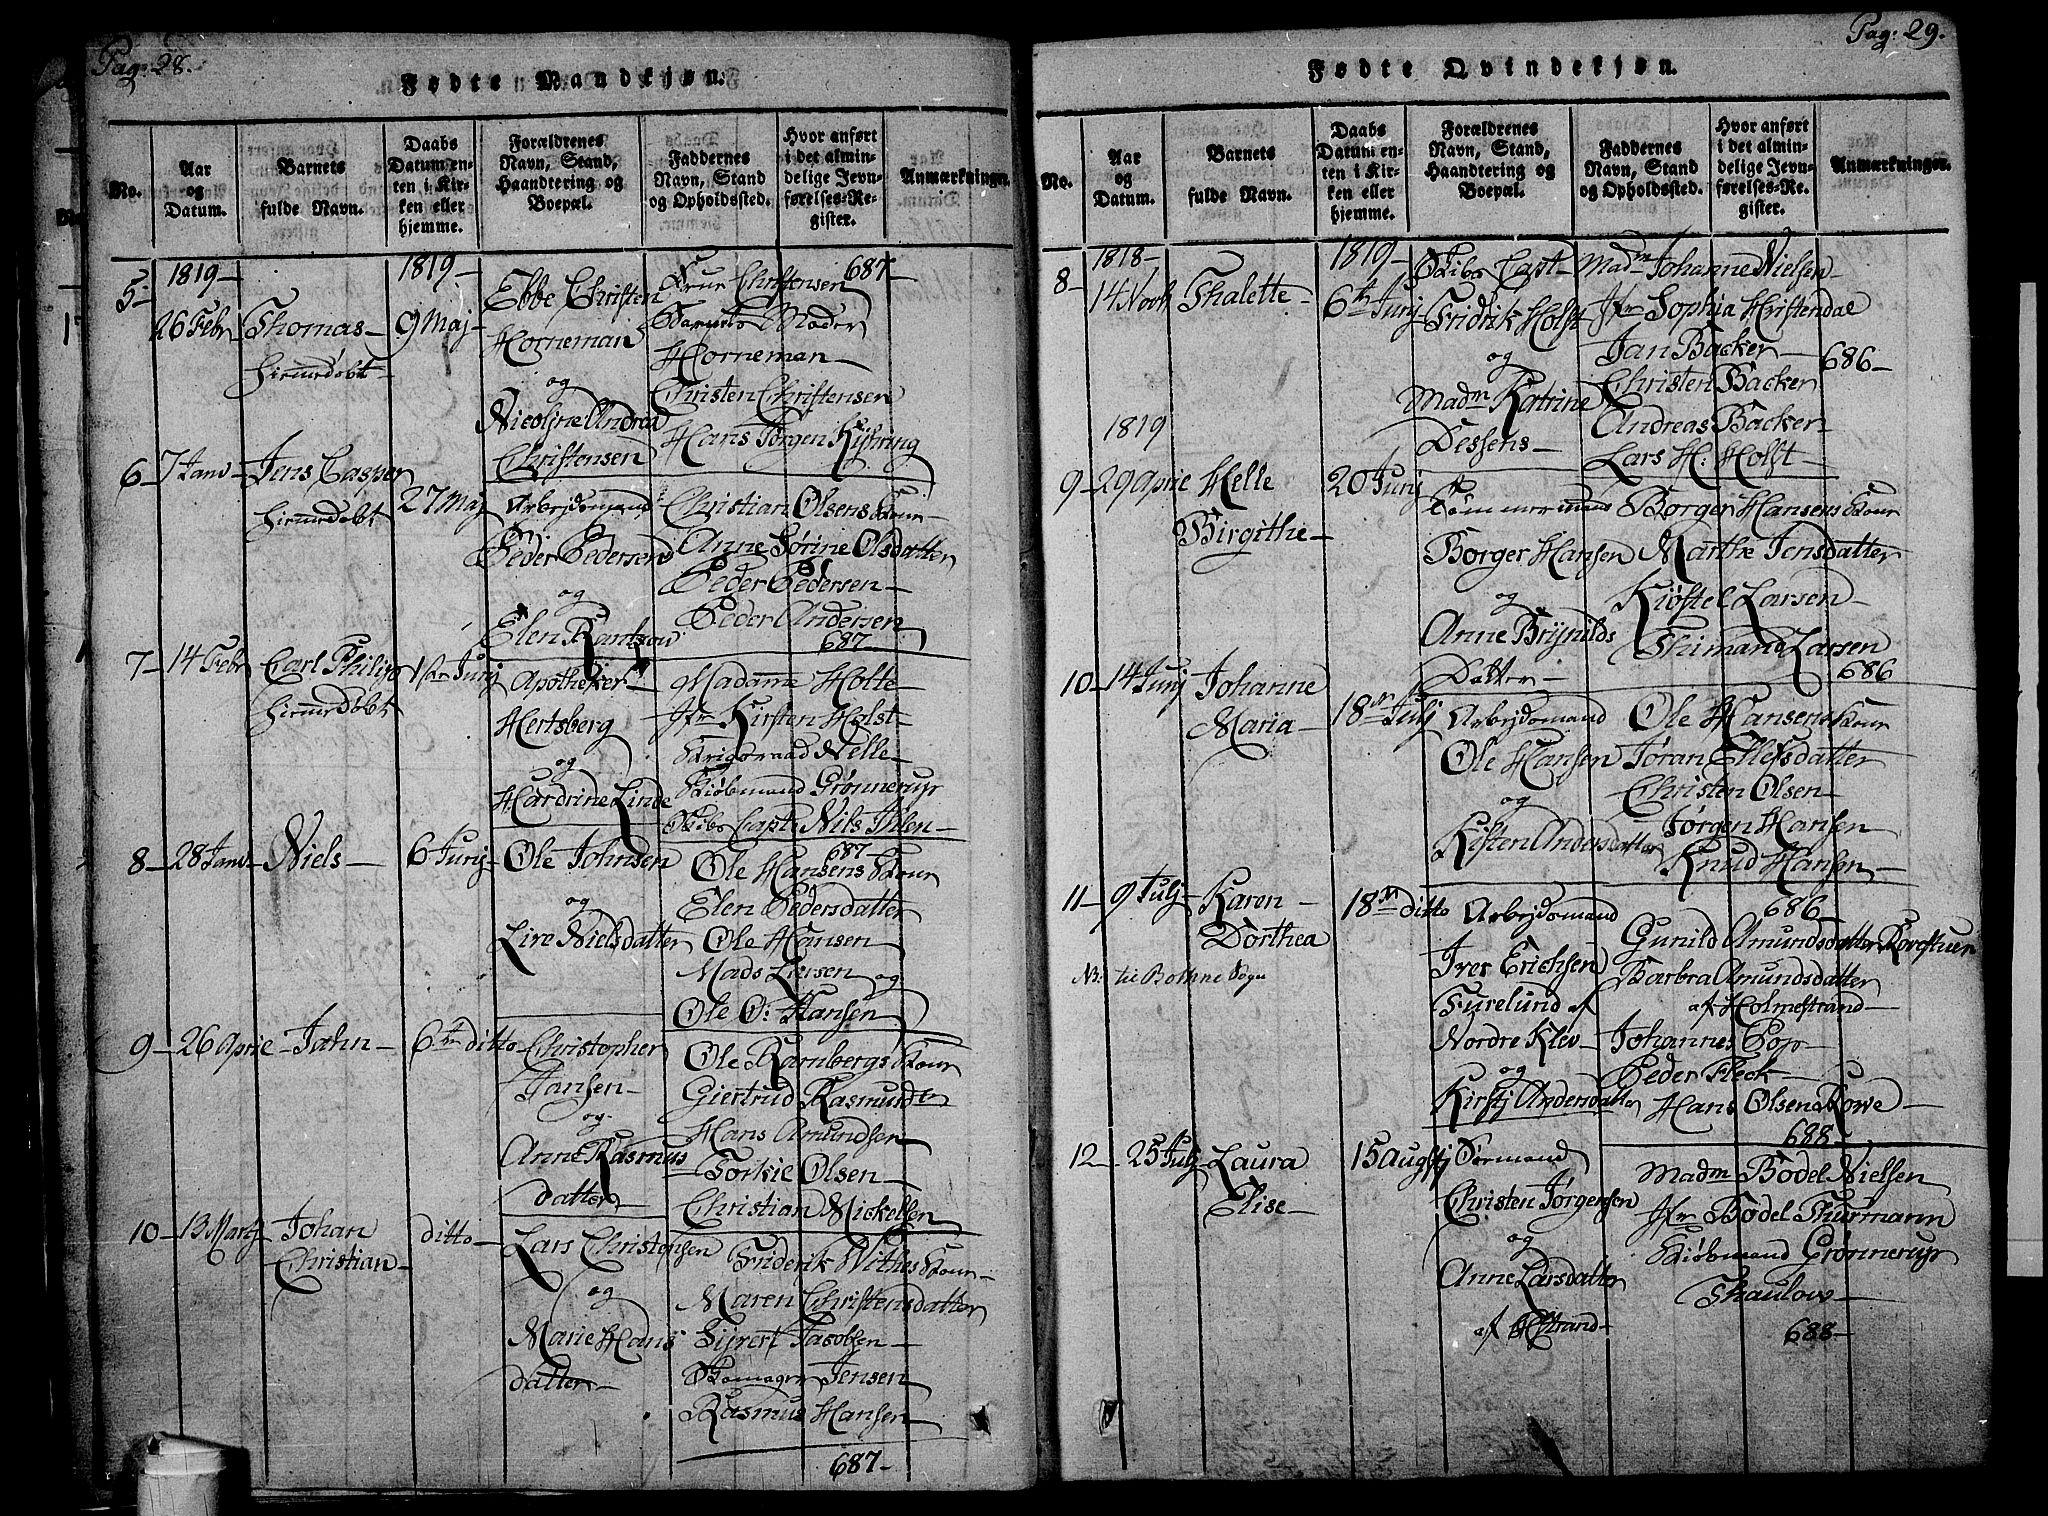 Pag: 28.
Fødte Mandkjøn.
No.
Aar og Datum.
Barnets fulde Navn.
Daabs Datum enten i Kirken eller hjemme.
Forældrenes Navn, Stand, Haandtering og Boepæl.
Faddernes Navn, Stand og Opholdssted.
Hvor anført i det almindelige Jevnførelses-Register.
Anmærkninger.
5-
1819-
26 Febr
Thomas-
hiemmedøbt-
1819-
9 Maj-
Ebbe Christen
Horneman
og
Nicoline Andrea
Christensen
Frue Christensen
Barnets Moder
Horneman-
Christen Christensen
Hans Jørgen Kyhring
687-
6-
7 Janv-
Jens Casper
hiemmedøbt
27 Maj
Arbejdsmand
Peder Pedersen
og
Elen Rantzow
Christian Olsens Kone-
Anne Sørine Olsdatter
Peder Pedersen-
Peder Andersen
687-
7-
14 Febr
Carl Philip
hiemmedøbt
1ste Junj
Apotheker
Hertsberg
og
Hardrine Linde
Madame Holte-
Jfr Kirsten Holst-
Krigsraad Nelle-
Kiøbmand Grønnerup
Skibs Capt: Nils Ihlen-
687-
8-
28 Janv-
Niels-
6 Junj-
Ole Johnsen
og
Live Nielsdatter
Ole Hansens Kone
Elen Pedersdatter
Ole Hansen
Mads Larsen og
Ole O: Hansen
9-
26 Aprie-
Jahn-
6te ditto-
Christopher
Hansen-
og
Anne Rasmus
datter
Ole Rambergs Kone
Giertrud Rasmundt
Hans Amundsen
Torkie Olsen
Christian Mickelsen
10-
13 Martj
Johan
Christian-
ditto-
Lars Christensen
og
Marie Hans
datter-
Friderik Withes Kone-
Maren Christensdatter
Sijvert Jacobsen-
Skomager Jensen
Rasmus Hansen
687-
Pag: 29.
Fødte Qvindekjøn.
No.
Aar og Datum.
Barnets fulde Navn.
Daabs Datum enten i Kirken eller hjemme.
Forældrenes Navn, Stand, Haandtering og Boepæl.
Faddernes Navn, Stand og Opholdssted.
Hvor anført i det almindelige Jevnførelses-Register.
Anmærkninger.
8-
1818-
14 Novb
Thalette-
1819-
6te Junj
Skibs Capt-
Fridrik Holst
og
Madm Katrine
Dessens-
Madm Johanne Nielsen-
Jfr Sophia Hiftendal
Jan Backer-
Christen Backer
Andreas Backer-
Lars H: Holst-
686-
1819
9-
29 Aprie
Helle
Birgithe-
20 Junj
Tømmermand
Borger Hansen
og
Anne Brynilds
Datter-
Borger Hansens Kone
Marthe Jensdatter
Kiøstel Larsen-
Thimand Larsen
686
10-
14 Junj
Johanne
Maria-
18de Julj
Arbejdsmand
Ole Hansen
og
Kisten Andersdatter
Ole Hansens Kone
Jøran Ellefsdatter
Christen Olsen-
Jørgen Hansen
Knud Hansen-
686-
11-
9 Julj-
Karen-
Dorthea
NB. til Bothne Sogn
18de ditto
Arbejdsmand
Iver Erichsen
Furelund af
Nordre Klev-
og
Kirstj Andersdatter
Gunild Amundsdatter Rørestuen
Barbra Amundsdatter
af Holmestrand-
Johannes Pop-
Peder Fleck-
Hans Olsen Rowe-
688-
12-
25 Julj-
Laura
Elise-
15 Augstj
Formand
Christen Jørgensen
og
Anne Larsdatter
af Hstrand-
Madm Bodel Nielsen
Jfr Bodel Thurmann
Kiøbmand Grønnerup
Thaulow-
688-